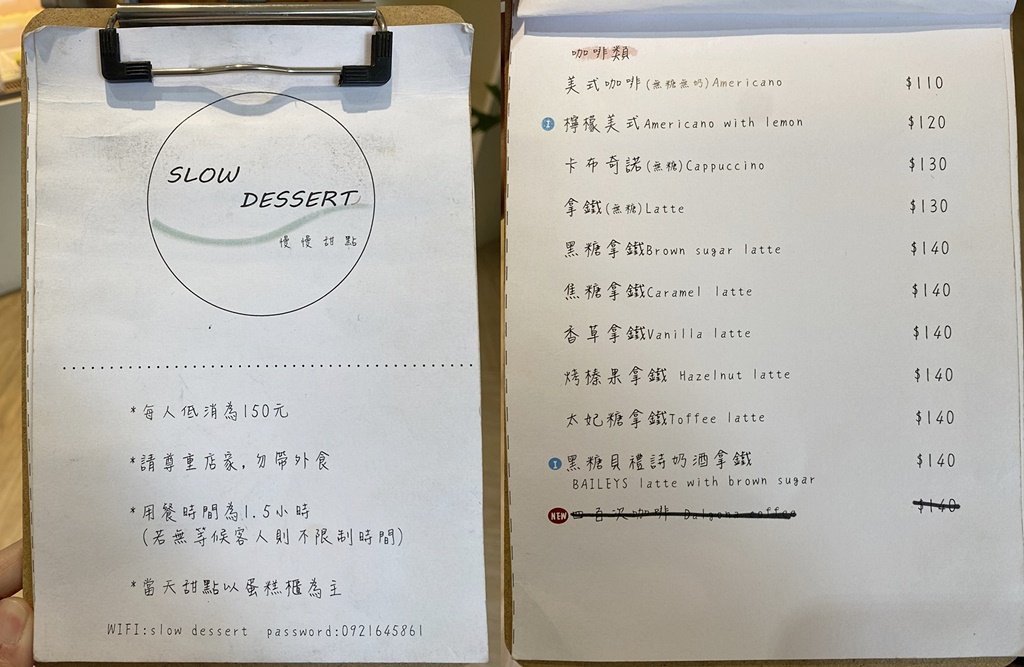 SLOW
DESSERT
慢慢甜點
*每人低消為150元
*請尊重店家,勿帶外食
*用餐時間為1.5小時
(若無等候客人則不限制時間)
*當天甜點以蛋糕櫃為主
WIFI:slow dessert password:0921645861
咖啡類
美式咖啡(無糖無奶)Americano $110
I 檸檬美式Americano with lemon $120
卡布奇諾(無糖)Cappuccino $130
拿鐵(無糖)Latte $130
黑糖拿鐵Brown sugar latte $140
焦糖拿鐵Caramel latte $140
香草拿鐵Vanilla latte $140
烤榛果拿鐵 Hazelnut latte $140
太妃糖拿鐵Toffee latte $140
I 黑糖貝禮詩奶酒拿鐵 $140
BAILEYS latte with brown sugar
NEW 四百次咖啡 Dalgona coffee $140